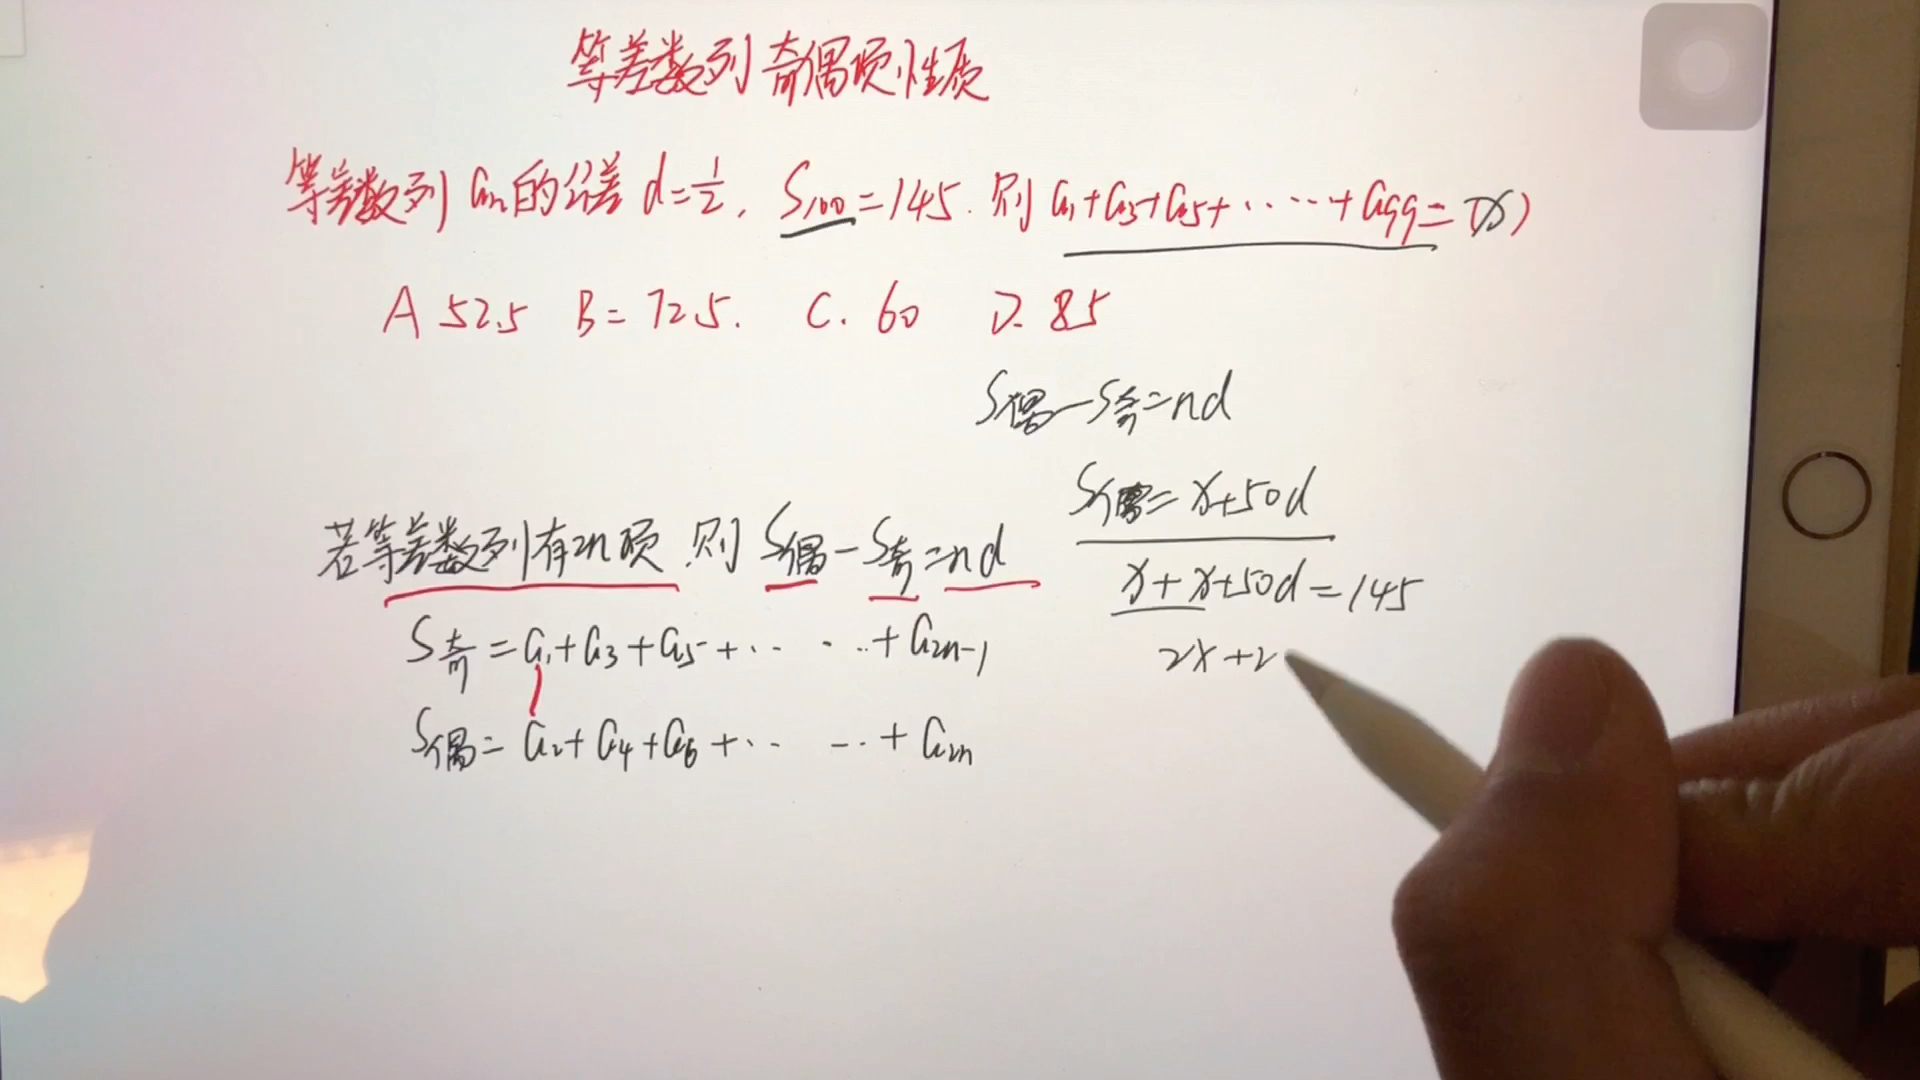 等差数列奇偶项性质
等差数列 an 的公差 d=1/2, S100=145. 则 a1+a3+a5+.....+a99=(x)
A 52.5 B= 72.5. C. 60 D. 85
S偶-S奇=nd
S偶=x+50d
若等差数列有2n项.则 S偶-S奇=nd
x+x+50d=145
S奇=a1+a3+a5+.. ...+a2n-1
2x+2
S偶=a2+a4+a6+.. -..+a2n